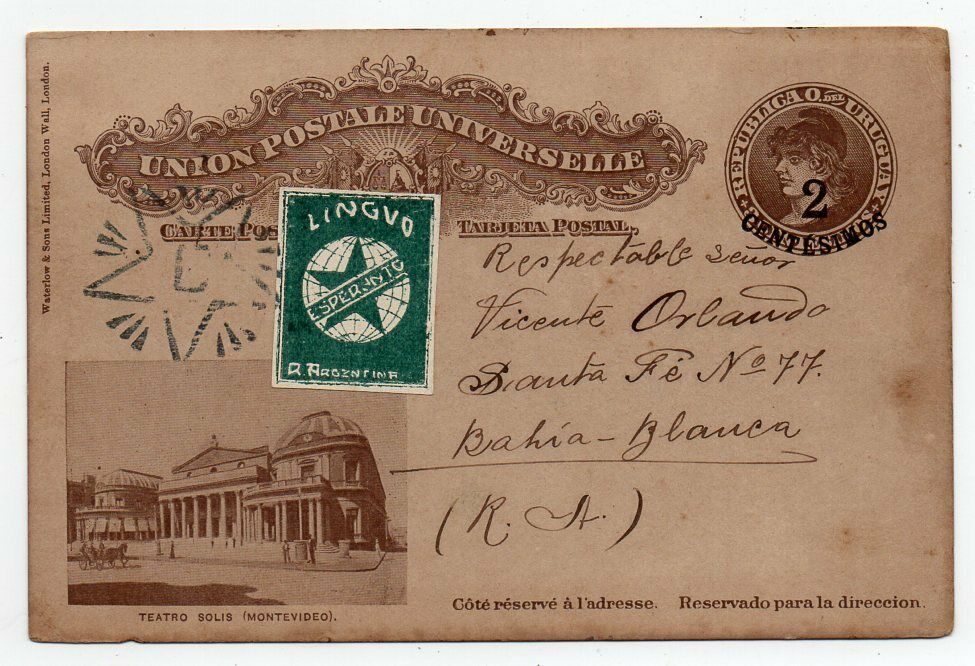 Waterlow & Sons Limited, London Wall, London.
UNION POSTALE UNIVERSELLE
CARTE POS
TARJETA POSTAL.
REPUBLICA O. DEL URUGUAY
2
CENTÉSIMOS
LINGVO
ESPERANTO
R. ARGENTINA
Respectable Señor
Vicente Orlando
Santa Fé Nº 77.
Bahía-Blanca
(R. A.)
TEATRO SOLIS (MONTEVIDEO).
Côté réservé à l'adresse. Reservado para la direccion.